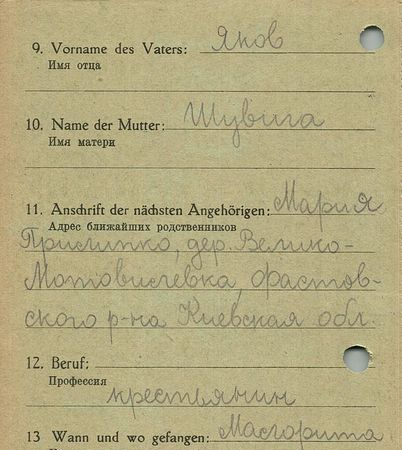 9. Vorname des Vaters: Яков
Имя отца
10. Name der Mutter: Шувига
Имя матери
11. Anschrift der nächsten Angehörigen: Мария
Адрес ближайших родственников
Прилипко, дер. Велико-
Мотовилевка, Фастов-
ского р-на Киевская обл.
12. Beruf:
Профессия
крестьянин
13 Wann und wo gefangen: